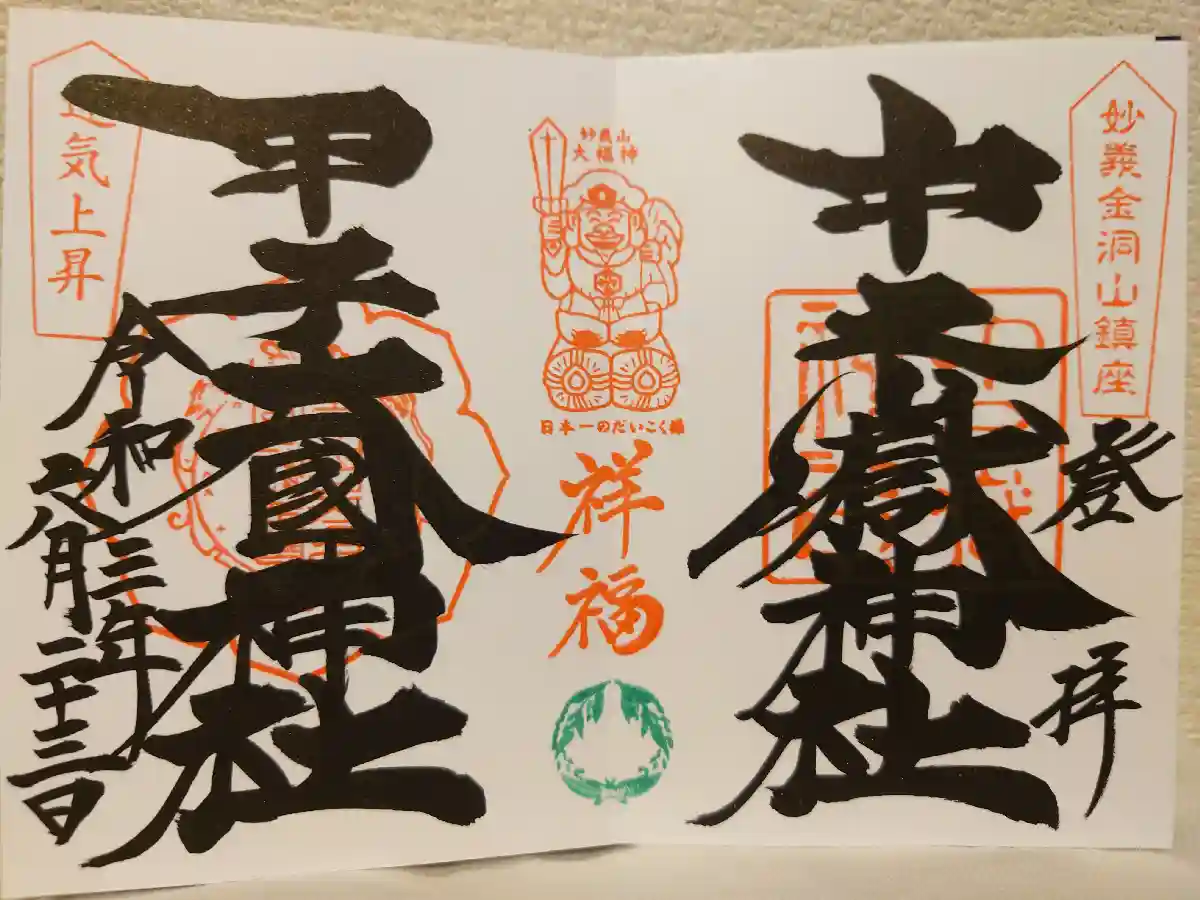 妙義金洞山鎮座
登拝
中之嶽神社
妙義山
大福神
日本一のだいこく様
祥福
甲子大國神社
運気上昇
令和三年
月二十三日